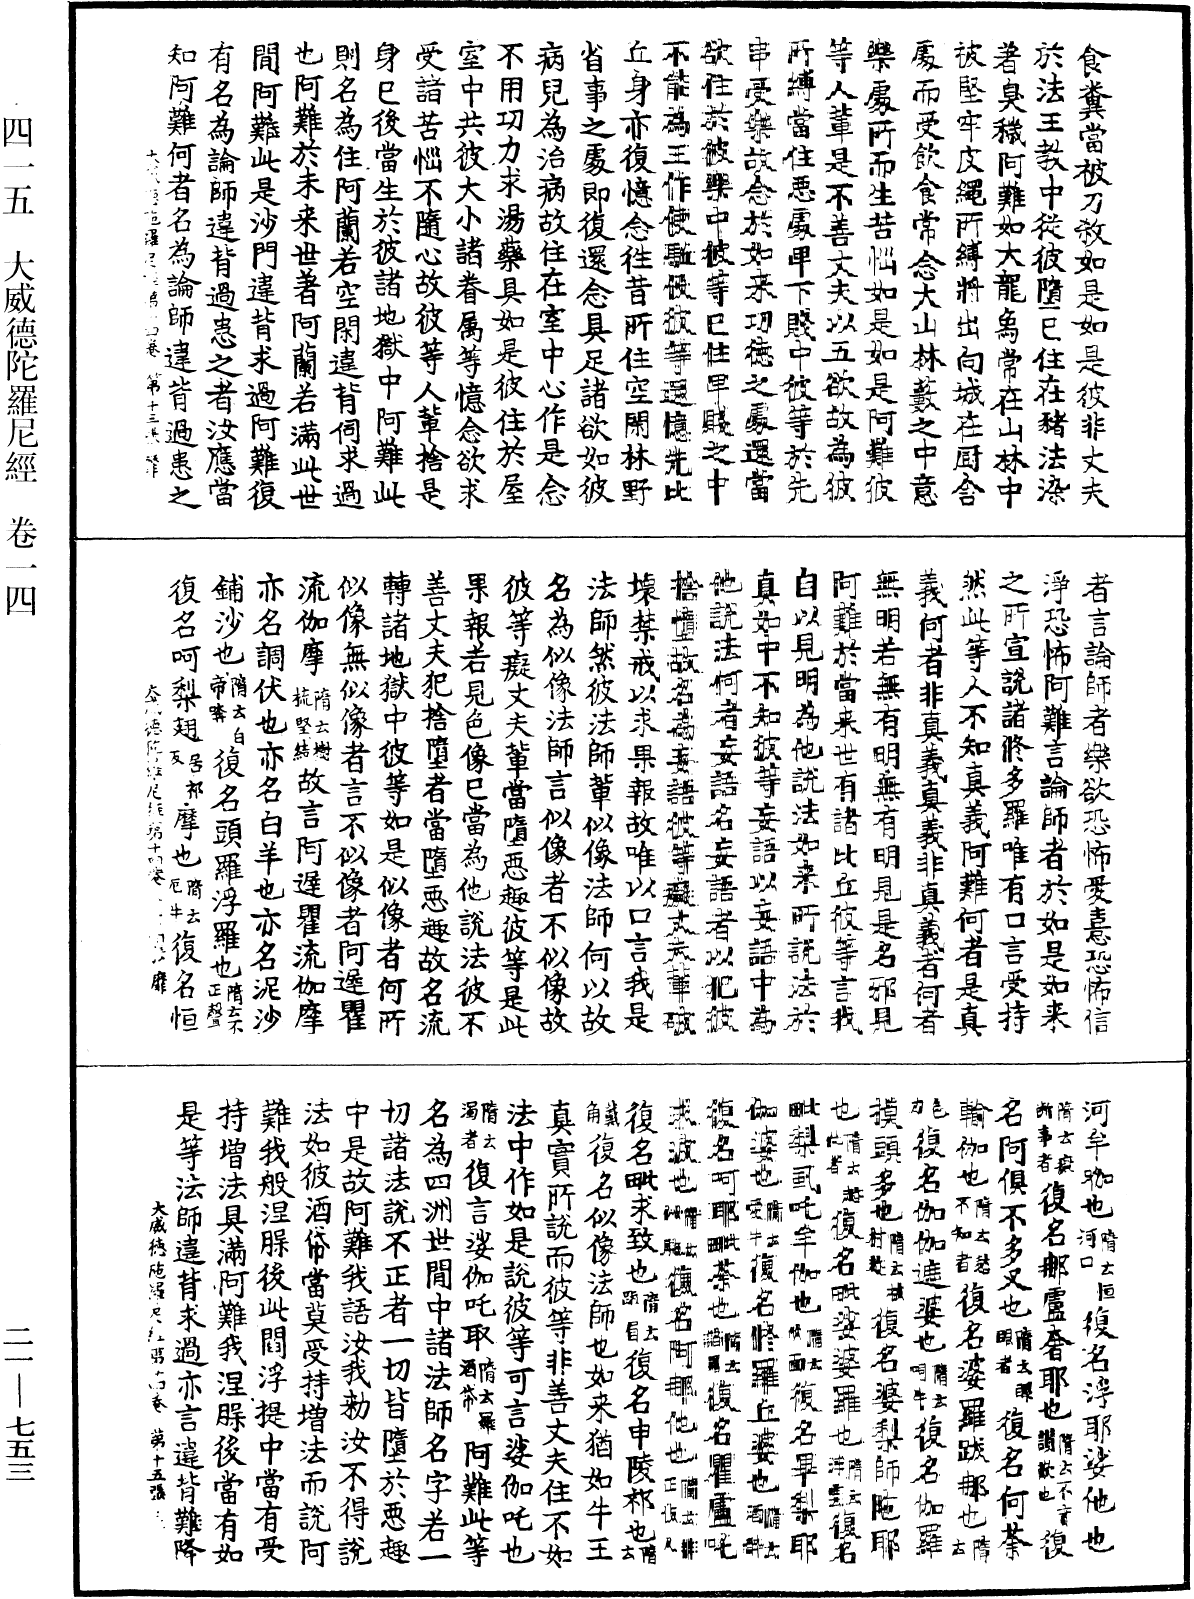 四一五　大威德陀羅尼經　卷一四
二一—七五三
食糞當被刀殺如是如是彼非丈夫
於法王教中從彼墮已住在豬法染
著臭穢阿難如大龍象常在山林中
被堅牢皮繩所縛將出向城在厨舍
處而受飲食常念大山林藪之中意
樂處所而生苦惱如是如是阿難彼
等人輩是不善丈夫以五欲故為彼
所縛當住惡處卑下賤中彼等於先
串受樂故念於如来功德之處還當
欲住於彼樂中彼等已住卑賤之中
不能為王作使驅役彼等還憶先比
丘身亦復憶念往昔所住空閑林野
省事之處即復還念具足諸欲如彼
病兒為治病故住在室中心作是念
不用功力求湯藥具如是彼住於屋
室中共彼大小諸眷属等憶念欲求
受諸苦惱不隨心故彼等人輩捨是
身已後當生於彼諸地獄中阿難此
則名為住阿蘭若空閑違背伺求過
也阿難於未来世著阿蘭若滿此世
間阿難此是沙門違背求過阿難復
有名為論師違背過患之者汝應當
知阿難何者名為論師違背過患之
者言論師者樂欲恐怖愛憙恐怖信
淨恐怖阿難言論師者於如是如来
之所宣說諸修多羅唯有口言受持
然此等人不知真義阿難何者是真
義何者非真義真義非真義者何者
無明若無有明無有明見是名邪見
阿難於當来世有諸比丘彼等言我
自以見明為他說法如来所說法於
真如中不知彼等妄語以妄語中為
他說法何者妄語名妄語者以犯彼
捨墮故名為妄語彼等癡丈夫輩破
壞禁戒以求果報故唯以口言我是
法師然彼法師輩似像法師何以故
名為似像法師言似像者不似像故
彼等癡丈夫輩當墮惡趣彼等是此
果報若見色像已當為他說法彼不
善丈夫犯捨墮者當墮惡趣故名流
轉諸地獄中彼等如是似像者何所
似像無似像者言不似像者阿遲瞿
流伽摩隋云樹梳堅結故言阿遲瞿流伽摩
亦名調伏也亦名白羊也亦名泥沙
鋪沙也隋云白帝嚌復名頭羅浮羅也隋云不正聲
復名呵梨翅居祁反摩也隋云厄牛復名恒
河牟(伽)也隋云恒河口復名浮耶娑他也
隋云癡断事者復名那盧奢耶也隋云不言謝歡也復
名阿俱不多又也隋云睞眼者復名何荼
輸伽也隋云愁不知者復名婆羅跋那也隋云
色力復名伽伽遮婆也隋云呵牛復名伽羅
摸頭多也隋云村復名婆梨師陁耶
也隋云作者復名毗婆婆羅也隋云復名
毗梨虱吒牟伽也隋云面復名畢梨耶
伽婆也隋云愛牛復名修羅丘婆也隋云酒
復名呵耶毗荼也隋云復名瞿盧吒
求波也隋云復名阿那他也隋云
復名毗求致也隋云復名申陵祁也隋云
戴角復名似像法師也如来猶如牛王
真實所說而彼等非善丈夫住不如
法中作如是說彼等可言娑伽吒也
隋云濁者復言娑伽吒取隋云羅酒帒阿難此等
名為四洲世間中諸法師名字若一
切諸法說不正者一切皆墮於惡趣
中是故阿難我語汝我勅汝不得說
法如彼酒帒當莫受持增法而說阿
難我般涅脲後此閻浮提中當有受
持增法具滿阿難我涅脲後當有如
是等法師違背求過亦言違背難降
大威德陁羅尼經第十四卷　第十三張
大威德陁羅尼經第十四卷
大威德陁羅尼經第十四卷　第十五張